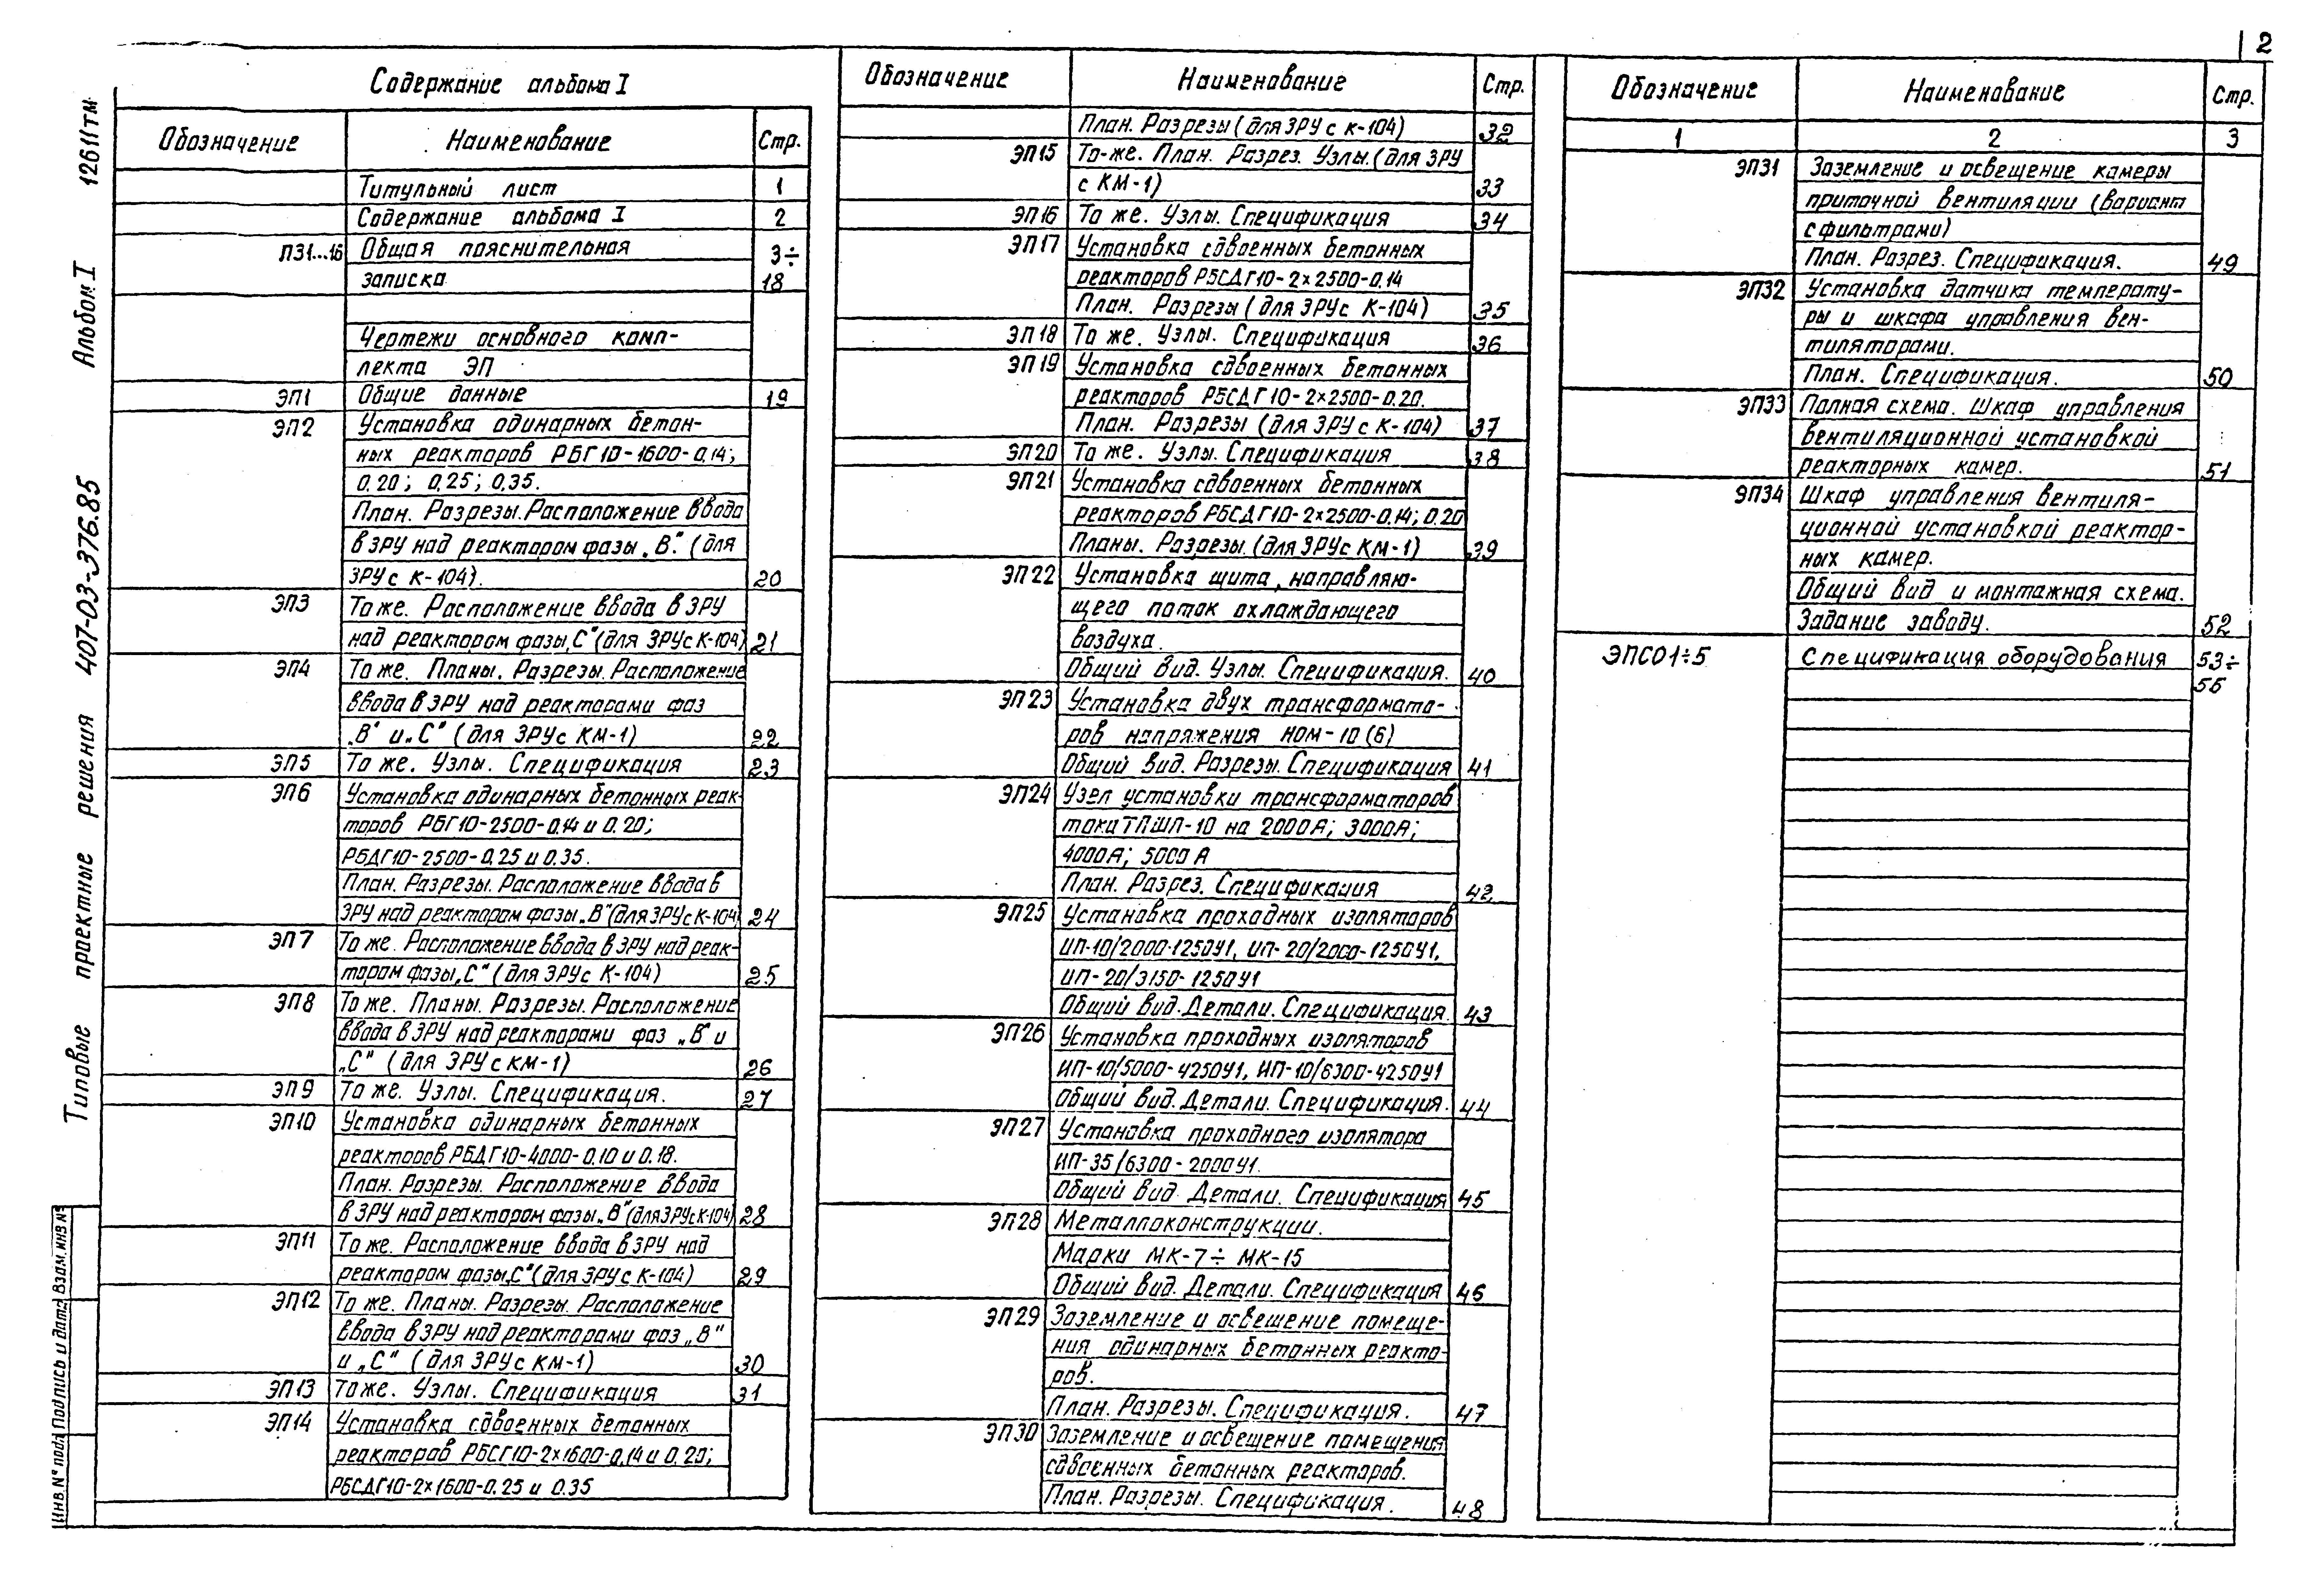 2
12611тм
Альбом I
407-03-376.85
Типовые проектные решения
Взам.инв№
Подпись и дата
Инв.№ подл.
Содержание альбома I
Обозначение Наименование Стр.
Титульный лист 1
Содержание альбома I 2
ПЗ1...16 Общая пояснительная 3÷
записка 18
Чертежи основного комп-
лекта ЭП
ЭП1 Общие данные 19
ЭП2 Установка одинарных бетон-
ных реакторов РБГ10-1600-0,14;
0,20; 0,25; 0,35.
План. Разрезы. Расположение ввода
в ЗРУ над реактором фазы „В". (для
ЗРУ с К-104). 20
ЭП3 То же. Расположение ввода в ЗРУ
над реактором фазы „С" (для ЗРУ с К-104) 21
ЭП4 То же. Планы. Разрезы. Расположение
ввода в ЗРУ над реакторами фаз
„В" и „С" (для ЗРУ с КМ-1) 22
ЭП5 То же. Узлы. Спецификация 23
ЭП6 Установка одинарных бетонных реак-
торов РБГ10-2500-0,14 и 0.20;
РБДГ10-2500-0,25 и 0.35.
План. Разрезы. Расположение ввода в
ЗРУ над реактором фазы „В" (для ЗРУ с К-104) 24
ЭП7 То же. Расположение ввода в ЗРУ над реак-
тором фазы „С" (для ЗРУ с К-104) 25
ЭП8 То же. Планы. Разрезы. Расположение
ввода в ЗРУ над реакторами фаз „В" и
„С" (для ЗРУ с КМ-1) 26
ЭП9 То же. Узлы. Спецификация. 27
ЭП10 Установка одинарных бетонных
реакторов РБДГ10-4000-0,10 и 0.18.
План. Разрезы. Расположение ввода
в ЗРУ над реактором фазы „В" (для ЗРУ с К-104) 28
ЭП11 То же. Расположение ввода в ЗРУ над
реактором фазы „С" (для ЗРУ с К-104) 29
ЭП12 То же. Планы. Разрезы. Расположение
ввода в ЗРУ над реакторами фаз „В"
и „С" (для ЗРУ с КМ-1) 30
ЭП13 То же. Узлы. Спецификация 31
ЭП14 Установка сдвоенных бетонных
реакторов РБСГ10-2×1600-0,14 и 0,20;
РБСДГ10-2×1600-0,25 и 0.35
Обозначение Наименование Стр.
План. Разрезы (для ЗРУ с К-104) 32
ЭП15 То-же. План. Разрез. Узлы. (для ЗРУ
с КМ-1) 33
ЭП16 То же. Узлы. Спецификация 34
ЭП17 Установка сдвоенных бетонных
реакторов РБСДГ10-2×2500-0,14
План. Разрезы (для ЗРУ с К-104) 35
ЭП18 То же. Узлы. Спецификация 36
ЭП19 Установка сдвоенных бетонных
реакторов РБСДГ10-2×2500-0.20.
План. Разрезы (для ЗРУ с К-104) 37
ЭП20 То же. Узлы. Спецификация 38
ЭП21 Установка сдвоенных бетонных
реакторов РБСДГ10-2×2500-0,14; 0,20
Планы. Разрезы. (для ЗРУ с КМ-1) 39
ЭП22 Установка щита, направляю-
щего поток охлаждающего
воздуха.
Общий вид. Узлы. Спецификация. 40
ЭП23 Установка двух трансформато-
ров напряжения НОМ-10(6)
Общий вид. Разрезы. Спецификация 41
ЭП24 Узел установки трансформаторов
тока ТПШЛ-10 на 2000А; 3000А;
4000А; 5000А
План. Разрез. Спецификация 42
ЭП25 Установка проходных изоляторов
ИП-10/2000-1250У1, ИП-20/2000-1250У1,
ИП-20/3150-1250У1
Общий вид. Детали. Спецификация. 43
ЭП26 Установка проходных изоляторов
ИП-10/5000-4250У1, ИП-10/6300-4250У1
Общий вид. Детали. Спецификация. 44
ЭП27 Установка проходного изолятора
ИП-35/6300-2000У1.
Общий вид. Детали. Спецификация 45
ЭП28 Металлоконструкции.
Марки МК-7÷МК-15
Общий вид. Детали. Спецификация 46
ЭП29 Заземление и освещение помеще-
ния одинарных бетонных реакто-
ров.
План. Разрезы. Спецификация. 47
ЭП30 Заземление и освещение помещения
сдвоенных бетонных реакторов.
План. Разрезы. Спецификация. 48
Обозначение Наименование Стр.
1 2 3
ЭП31 Заземление и освещение камеры
приточной вентиляции (вариант
с фильтрами)
План. Разрез. Спецификация. 49
ЭП32 Установка датчика температу-
ры и шкафа управления вен-
тиляторами.
План. Спецификация. 50
ЭП33 Полная схема. Шкаф управления
вентиляционной установкой
реакторных камер. 51
ЭП34 Шкаф управления вентиля-
ционной установкой реактор-
ных камер.
Общий вид и монтажная схема.
Задание заводу. 52
ЭПСО1÷5 Спецификация оборудования 53÷
56